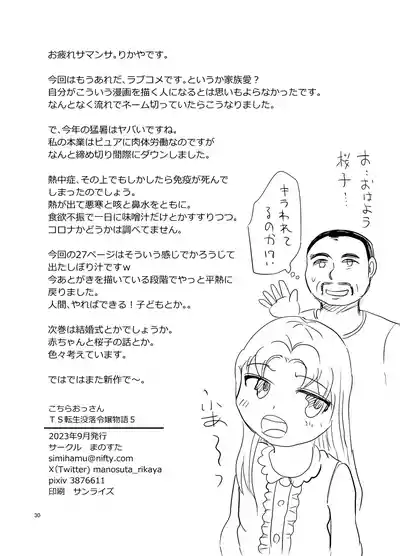 お疲れサマンサ。りかやです。
今回はもうあれだ、ラブコメです。というか家族愛?
自分がこういう漫画を描く人になるとは思いもよらなかったです。
なんとなく流れでネーム切っていたらこうなりました。
で、今年の猛暑はヤバいですね。
私の本業はピュアに肉体労働なのですが
なんと締め切り間際にダウンしました。
熱中症、その上でもしかしたら免疫が死んで
しまったのでしょう。
熱が出て悪寒と咳と鼻水をともに。
食欲不振で一日に味噌汁だけとかすすりつつ。
コロナかどうかは調べてません。
今回の27ページはそういう感じでかろうじて
出たしぼり汁ですw
今あとがきを描いている段階でやっと平熱に
戻りました。
人間、やればできる!子どもとか。。
次巻は結婚式とかでしょうか。
赤ちゃんと桜子の話とか。
色々考えています。
ではではまた新作で~。
こちらおっさん
TS転生没落令嬢物語5
2023年9月発行
サークル まのすた
simihamu@nifty.com
X(Twitter) manosuta_rikaya
pixiv 3876611
印刷 サンライズ
お…おはよう
桜子…
キラわれて
るのか!?
ふあ~っ
30